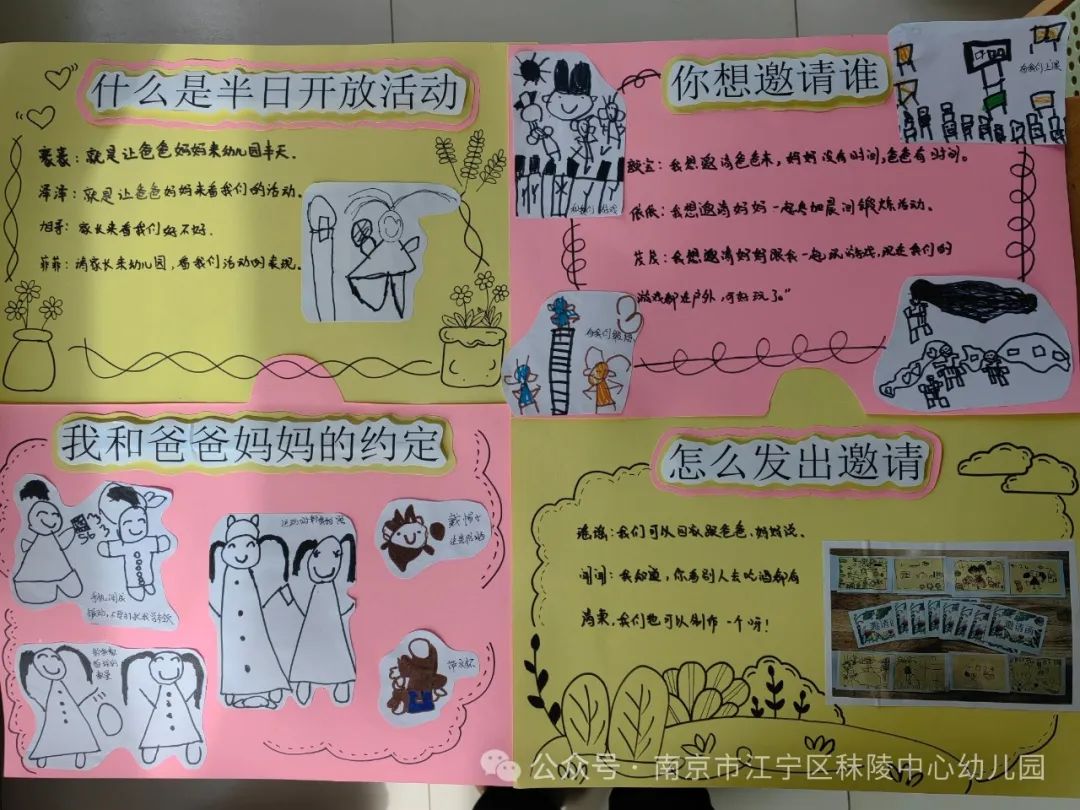 什么是半日开放活动
豪豪：就是让爸爸妈妈来幼儿园半天。
泽泽：就是让爸爸妈妈来看我们的活动。
旭哥：家长来看我们好不好.
菲菲：请家长来幼儿园，看我们活动的表现。
你想邀请谁
我想邀请爸爸来，妈妈没有时间，爸爸有时间。
我想邀请妈妈一起参加晨间锻炼活动。
我想邀请妈妈跟我一起玩游戏，现在我们的
游戏都在户外，可好玩了。”
看我们上课
我和爸爸妈妈的约定
怎么发出邀请
我们可以回家跟爸爸、妈妈说。
我知道，你看别人去吃酒都有
请柬，我们也可以制作一个呀！
邀请函
公众号·南京市江宁区秣陵中心幼儿园